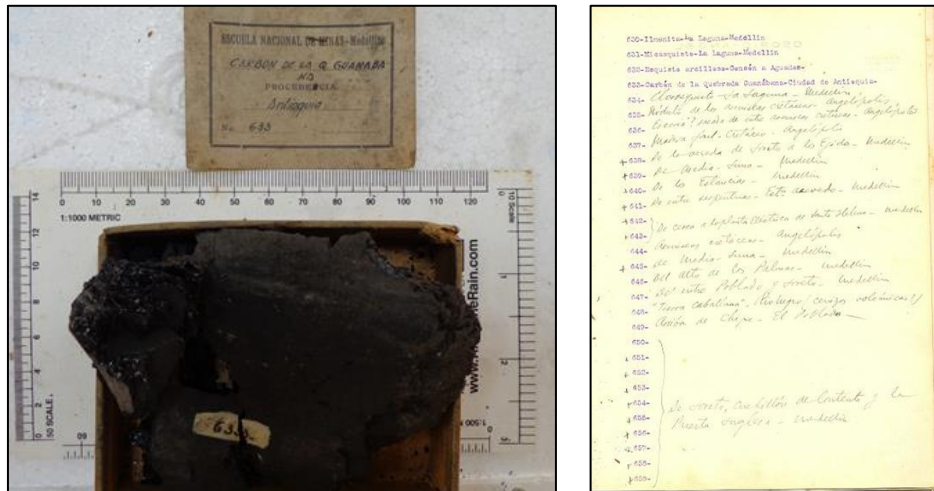 ESCUELA NACIONAL DE MINAS-Medellín
CARBON DE LA Q. GUANABA
NA
PROCEDENCIA
Antioquia
No. 633
0 10 20 30 40 50 60 70 80 90 100 110 120
1:1000 METRIC
14
12
10
8
6
4
2
0
50 SCALE
10 Scale
1
2
3
1:500
60
633
630-Ilmenita-La Laguna-Medellín
631-Micasquisto-La Laguna-Medellín
632-Esquisto arcilloso-Sonsón a Aguadas-
633-Carbón de la Quebrada Guanábana-Ciudad de Antioquia-
634- Cloroesquisto - La Laguna - Medellín
635- Nódulo de las areniscas cretáceas - Angelópolis
636- de estas areniscas cretáceas - Angelópolis
637- Madera fósil - Cretáceo - Angelópolis
+ 638- De la vereda de Loreto a los Ejidos - Medellín
+ 639- De Media-Luna - Medellín
+ 640- De las Estancias - Medellín
+ 641- De entre serpentinas - Medellín
+ 642-
+ 643- De cerca a la planta eléctrica de Santa Helena - Medellín
644- Areniscas cretáceas - Angelópolis
+ 645- De Media-Luna - Medellín
646- Del alto de las Palmas - Medellín
647- De entre Poblado y Loreto - Medellín
648- "Tierra cabalina", Rionegro (cenizas volcánicas?)
649- de Chipe - El Poblado
650-
+ 651-
+ 652-
+ 653-
+ 654- De Loreto, Cuchillón de Contento y la
+ 655- Puerta Inglesa - Medellín
+ 656-
+ 657-
+ 658-
+ 659-